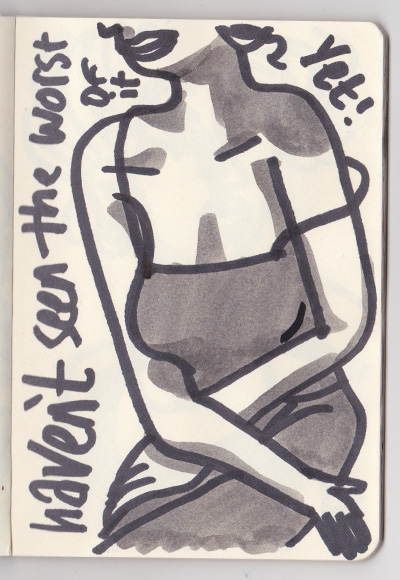 haven't seen the worst
of it
yet!